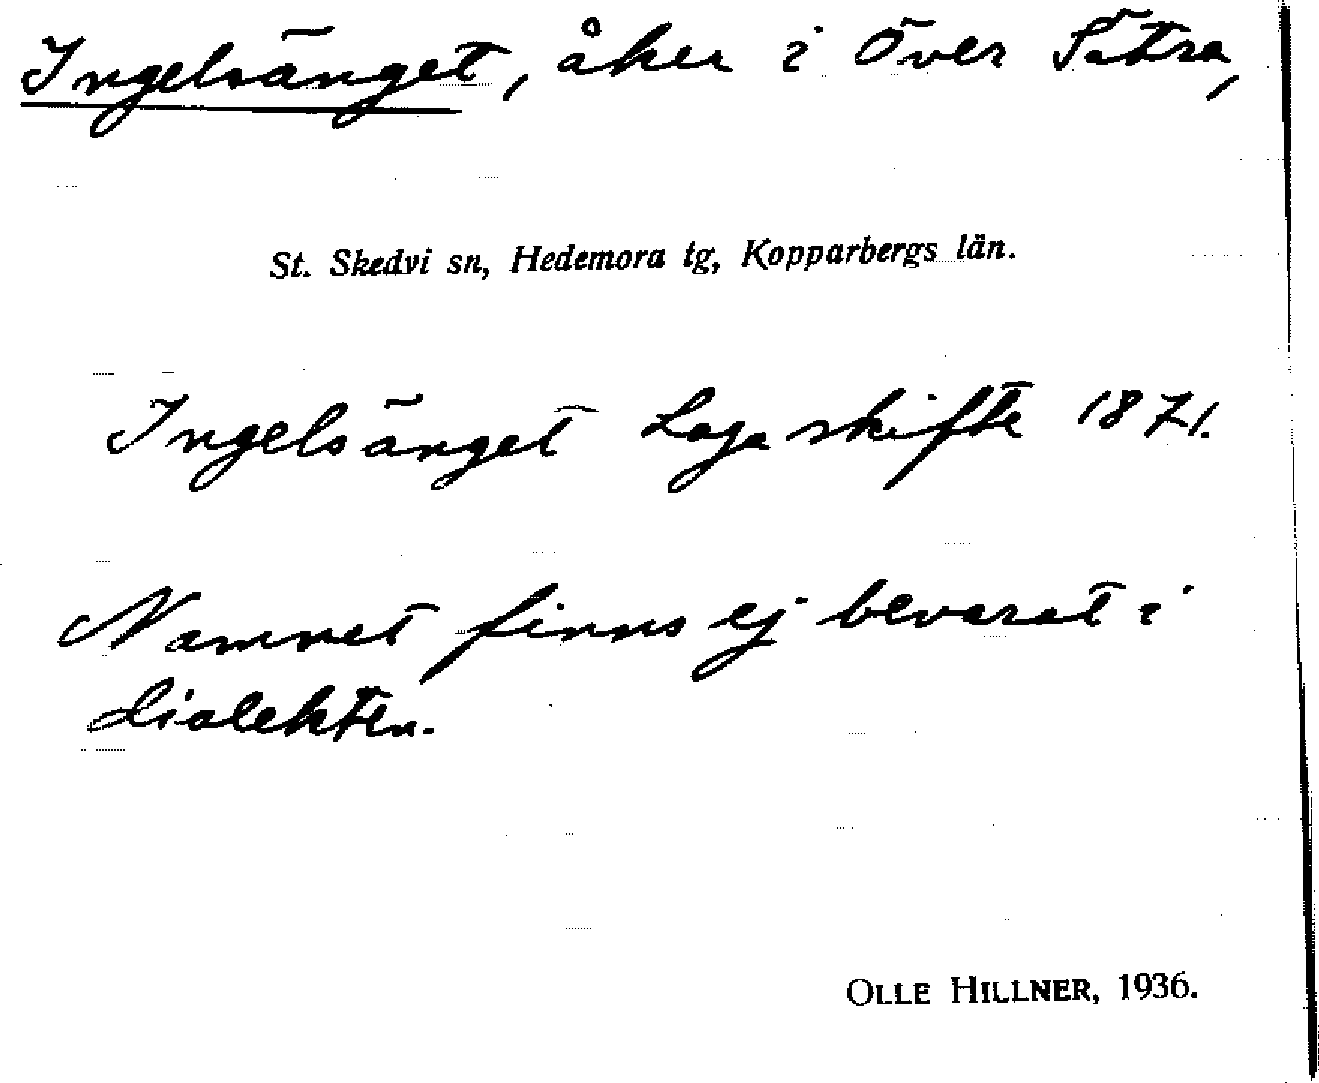 Ingelsänget, åker i Över Sätra,
St. Skedvi sn, Hedemora tg, Kopparbergs län.
Ingelsänget Laga skifte 1871.
Namnet finns ej bevarat i
dialekten.
OLLE HILLNER, 1936.